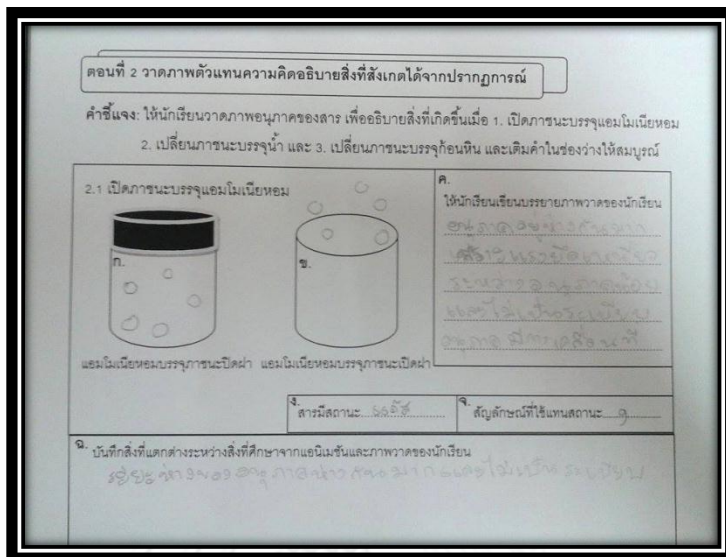 ตอนที่ 2 วาดภาพตัวแทนความคิดอธิบายสิ่งที่สังเกตได้จากปรากฏการณ์
คำชี้แจง: ให้นักเรียนวาดภาพอนุภาคของสาร เพื่ออธิบายสิ่งที่เกิดขึ้นเมื่อ 1. เปิดภาชนะบรรจุแอมโมเนียหอม
2. เปลี่ยนภาชนะบรรจุน้ำ และ 3. เปลี่ยนภาชนะบรรจุก้อนหิน และเติมคำในช่องว่างให้สมบูรณ์
2.1 เปิดภาชนะบรรจุแอมโมเนียหอม
ก.
ข.
แอมโมเนียหอมบรรจุภาชนะปิดฝา แอมโมเนียหอมบรรจุภาชนะเปิดฝา
ค.
ให้นักเรียนเขียนบรรยายภาพวาดของนักเรียน
อนุภาคอยู่ห่างกันมาก
แรงยึดเหนี่ยว
ระหว่างอนุภาคน้อย
และไม่เป็นระเบียบ
อนุภาคมีการเคลื่อนที่
ง. สารมีสถานะ แก๊ส
จ. สัญลักษณ์ที่ใช้แทนสถานะ g
ฉ. บันทึกสิ่งที่แตกต่างระหว่างสิ่งที่ศึกษาจากแอนิเมชันและภาพวาดของนักเรียน
ระยะห่างของอนุภาคห่างกันมากและไม่เป็นระเบียบ